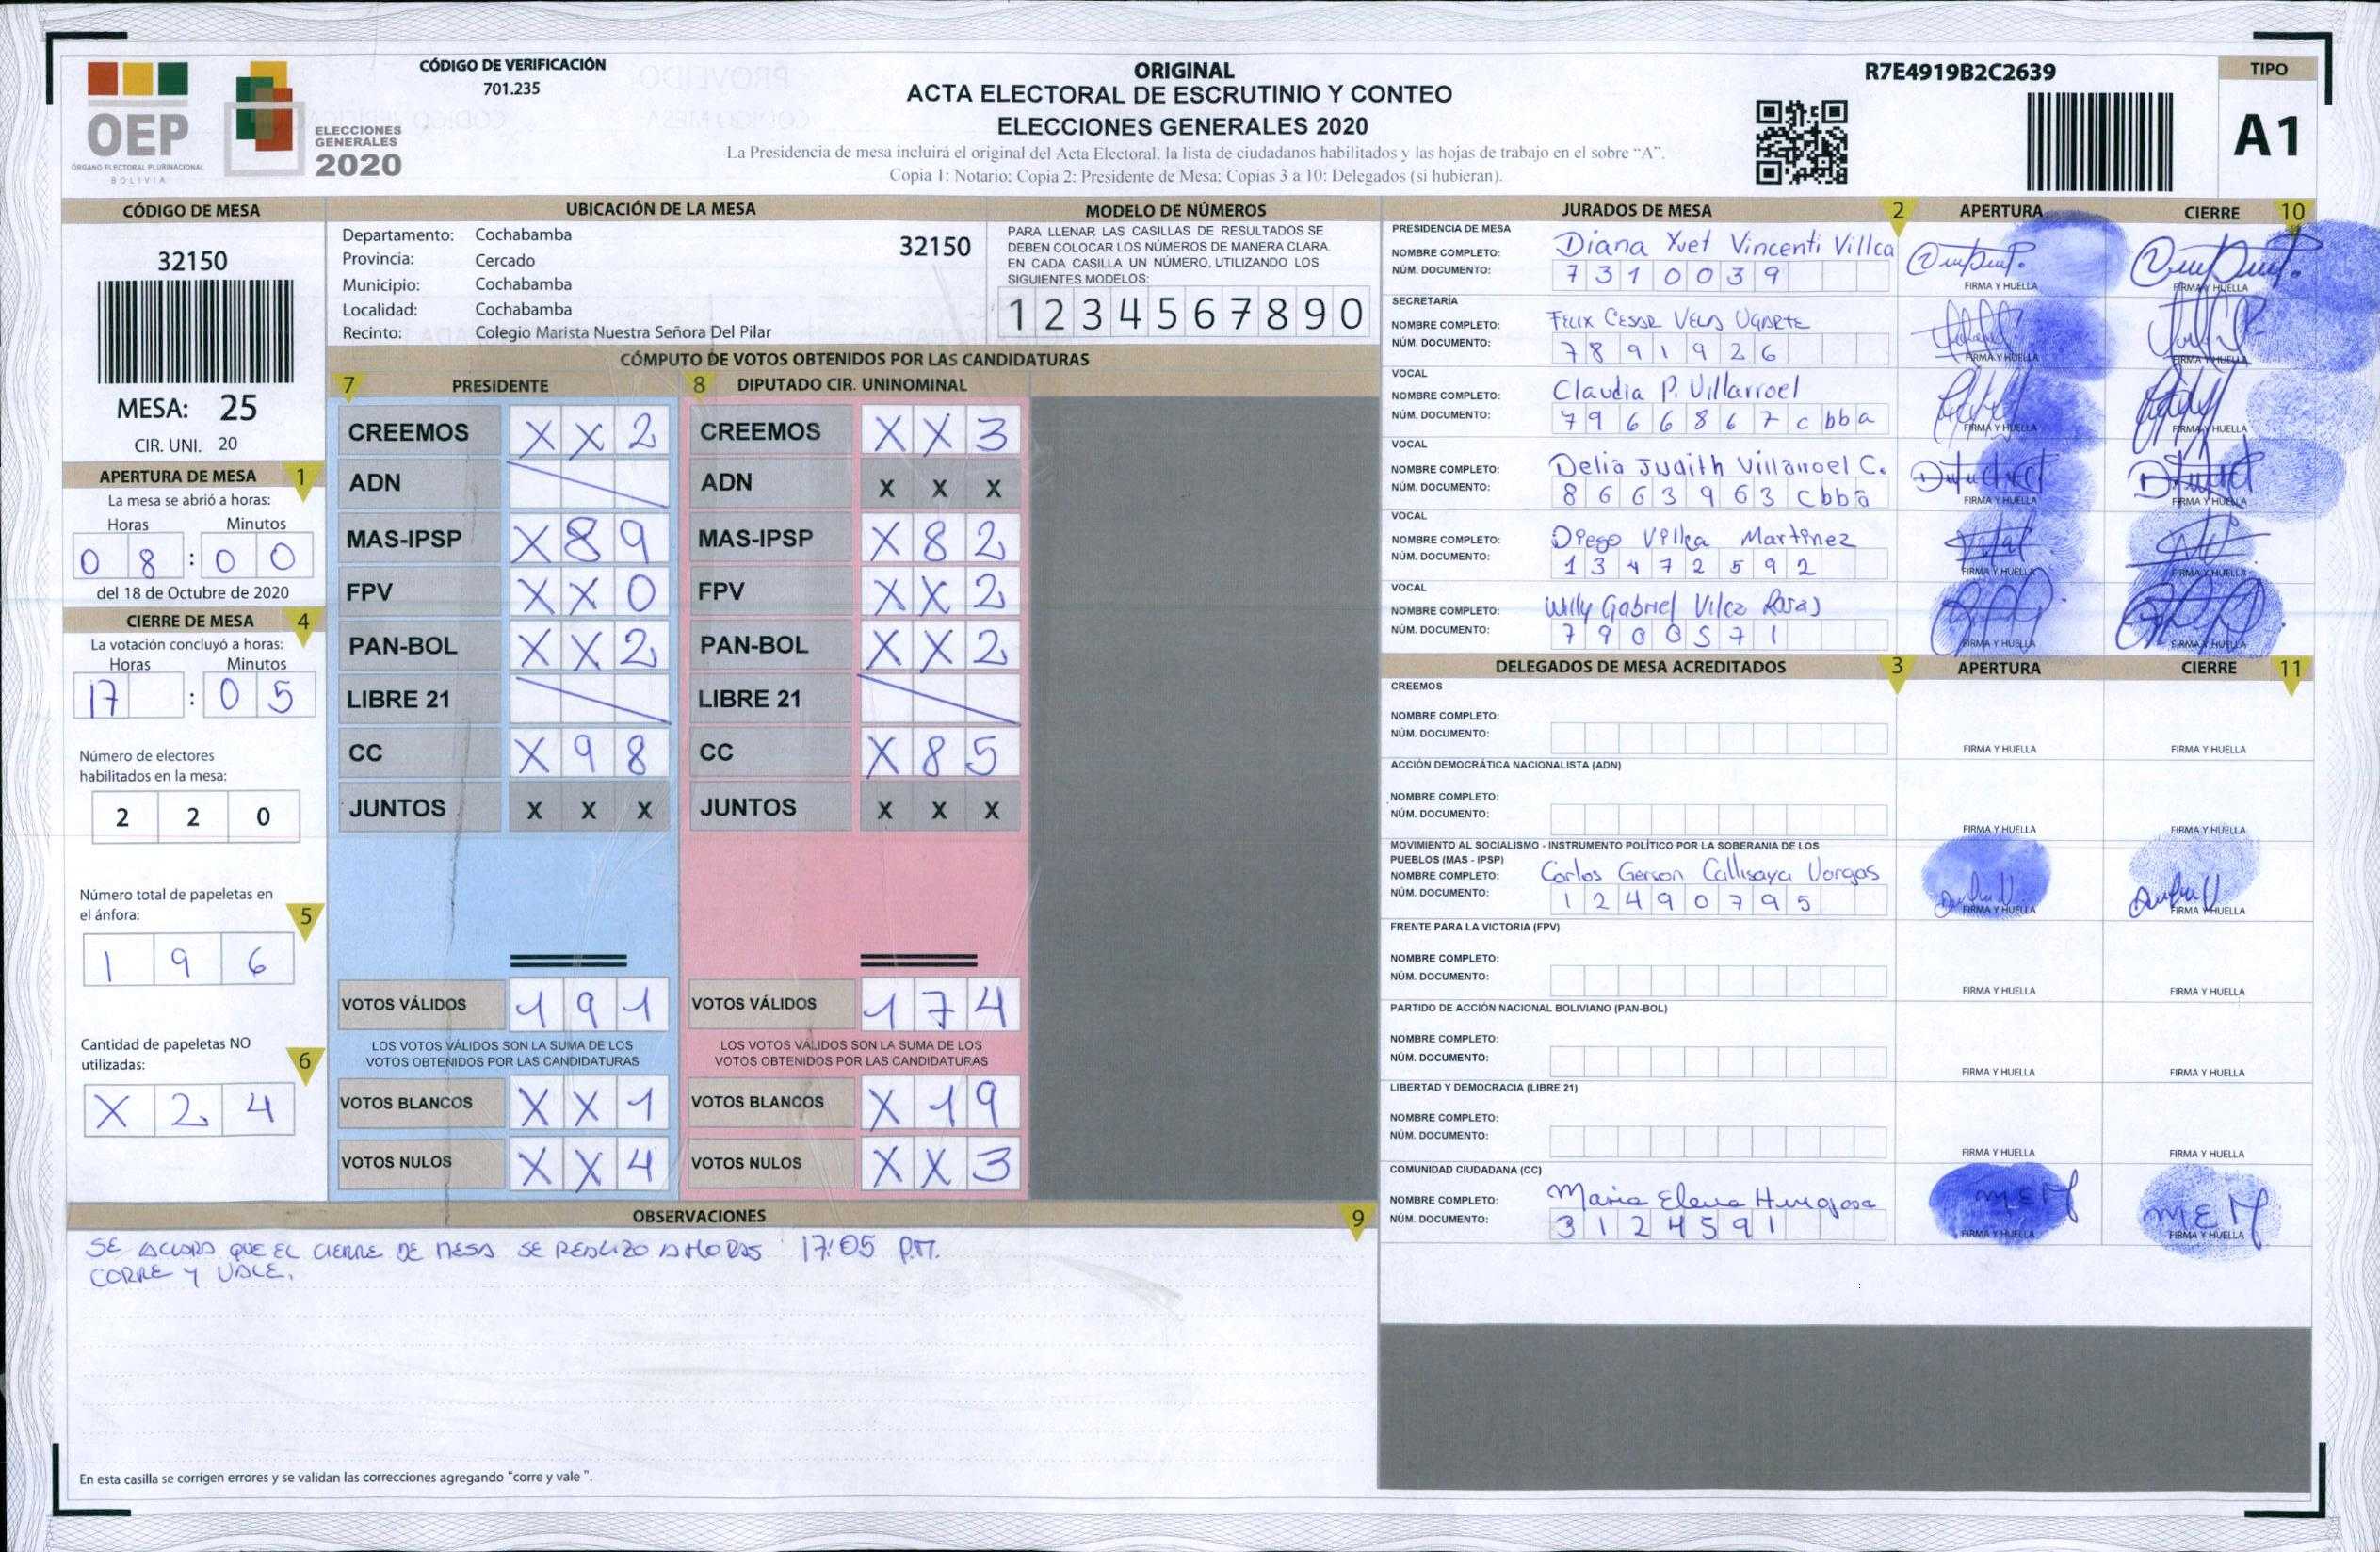 OEP
ÓRGANO ELECTORAL PLURINACIONAL
BOLIVIA
ELECCIONES
GENERALES
2020
CÓDIGO DE VERIFICACIÓN
701.235
ORIGINAL
ACTA ELECTORAL DE ESCRUTINIO Y CONTEO
ELECCIONES GENERALES 2020
La Presidencia de mesa incluirá el original del Acta Electoral, la lista de ciudadanos habilitados y las hojas de trabajo en el sobre “A”.
Copia 1: Notario; Copia 2: Presidente de Mesa; Copias 3 a 10: Delegados (si hubieran).
R7E4919B2C2639
TIPO
A1
CÓDIGO DE MESA
32150
MESA: 25
CIR. UNI. 20
APERTURA DE MESA 1
La mesa se abrió a horas:
Horas Minutos
0 8 : 0 0
del 18 de Octubre de 2020
CIERRE DE MESA 4
La votación concluyó a horas:
Horas Minutos
17 : 0 5
Número de electores
habilitados en la mesa:
2 2 0
Número total de papeletas en
el ánfora: 5
1 9 6
Cantidad de papeletas NO
utilizadas: 6
X 2 4
UBICACIÓN DE LA MESA
Departamento: Cochabamba 32150
Provincia: Cercado
Municipio: Cochabamba
Localidad: Cochabamba
Recinto: Colegio Marista Nuestra Señora Del Pilar
MODELO DE NÚMEROS
PARA LLENAR LAS CASILLAS DE RESULTADOS SE
DEBEN COLOCAR LOS NÚMEROS DE MANERA CLARA.
EN CADA CASILLA UN NÚMERO, UTILIZANDO LOS
SIGUIENTES MODELOS:
1 2 3 4 5 6 7 8 9 0
CÓMPUTO DE VOTOS OBTENIDOS POR LAS CANDIDATURAS
7 PRESIDENTE 8 DIPUTADO CIR. UNINOMINAL
CREEMOS X X 2 CREEMOS X X 3
ADN ADN X X X
MAS-IPSP X 8 9 MAS-IPSP X 8 2
FPV X X 0 FPV X X 2
PAN-BOL X X 2 PAN-BOL X X 2
LIBRE 21 LIBRE 21
CC X 9 8 CC X 8 5
JUNTOS X X X JUNTOS X X X
VOTOS VÁLIDOS 1 9 1 VOTOS VÁLIDOS 1 7 4
LOS VOTOS VÁLIDOS SON LA SUMA DE LOS LOS VOTOS VÁLIDOS SON LA SUMA DE LOS
VOTOS OBTENIDOS POR LAS CANDIDATURAS VOTOS OBTENIDOS POR LAS CANDIDATURAS
VOTOS BLANCOS X X 1 VOTOS BLANCOS X 1 9
VOTOS NULOS X X 4 VOTOS NULOS X X 3
OBSERVACIONES 9
SE ACLARA QUE EL CIERRE DE MESA SE REALIZO A HORAS 17:05 P.M.
CORRE Y VALE.
En esta casilla se corrigen errores y se validan las correcciones agregando “corre y vale ”.
JURADOS DE MESA 2 APERTURA CIERRE 10
PRESIDENCIA DE MESA
NOMBRE COMPLETO: Diana Yvet Vincenti Villca
NÚM. DOCUMENTO: 7310039
FIRMA Y HUELLA FIRMA Y HUELLA
SECRETARÍA
NOMBRE COMPLETO: FELIX CESAR VELA UGARTE
NÚM. DOCUMENTO: 7891926
FIRMA Y HUELLA FIRMA Y HUELLA
VOCAL
NOMBRE COMPLETO: Claudia P. Villarroel
NÚM. DOCUMENTO: 7966867 cbba
FIRMA Y HUELLA FIRMA Y HUELLA
VOCAL
NOMBRE COMPLETO: Delia Judith Villarroel C.
NÚM. DOCUMENTO: 8663963 cbba
FIRMA Y HUELLA FIRMA Y HUELLA
VOCAL
NOMBRE COMPLETO: Diego Villca Martinez
NÚM. DOCUMENTO: 13472592
FIRMA Y HUELLA FIRMA Y HUELLA
VOCAL
NOMBRE COMPLETO: Willy Gabriel Vilca Rosas
NÚM. DOCUMENTO: 7900571
FIRMA Y HUELLA FIRMA Y HUELLA
DELEGADOS DE MESA ACREDITADOS 3 APERTURA CIERRE 11
CREEMOS
NOMBRE COMPLETO:
NÚM. DOCUMENTO:
FIRMA Y HUELLA FIRMA Y HUELLA
ACCIÓN DEMOCRÁTICA NACIONALISTA (ADN)
NOMBRE COMPLETO:
NÚM. DOCUMENTO:
FIRMA Y HUELLA FIRMA Y HUELLA
MOVIMIENTO AL SOCIALISMO - INSTRUMENTO POLÍTICO POR LA SOBERANIA DE LOS
PUEBLOS (MAS - IPSP)
NOMBRE COMPLETO: Carlos Gerson Callisaya Vargas
NÚM. DOCUMENTO: 12490795
FIRMA Y HUELLA FIRMA Y HUELLA
FRENTE PARA LA VICTORIA (FPV)
NOMBRE COMPLETO:
NÚM. DOCUMENTO:
FIRMA Y HUELLA FIRMA Y HUELLA
PARTIDO DE ACCIÓN NACIONAL BOLIVIANO (PAN-BOL)
NOMBRE COMPLETO:
NÚM. DOCUMENTO:
FIRMA Y HUELLA FIRMA Y HUELLA
LIBERTAD Y DEMOCRACIA (LIBRE 21)
NOMBRE COMPLETO:
NÚM. DOCUMENTO:
FIRMA Y HUELLA FIRMA Y HUELLA
COMUNIDAD CIUDADANA (CC)
NOMBRE COMPLETO: Maria Elena Hinojosa
NÚM. DOCUMENTO: 3124591
MEM MEM
FIRMA Y HUELLA FIRMA Y HUELLA